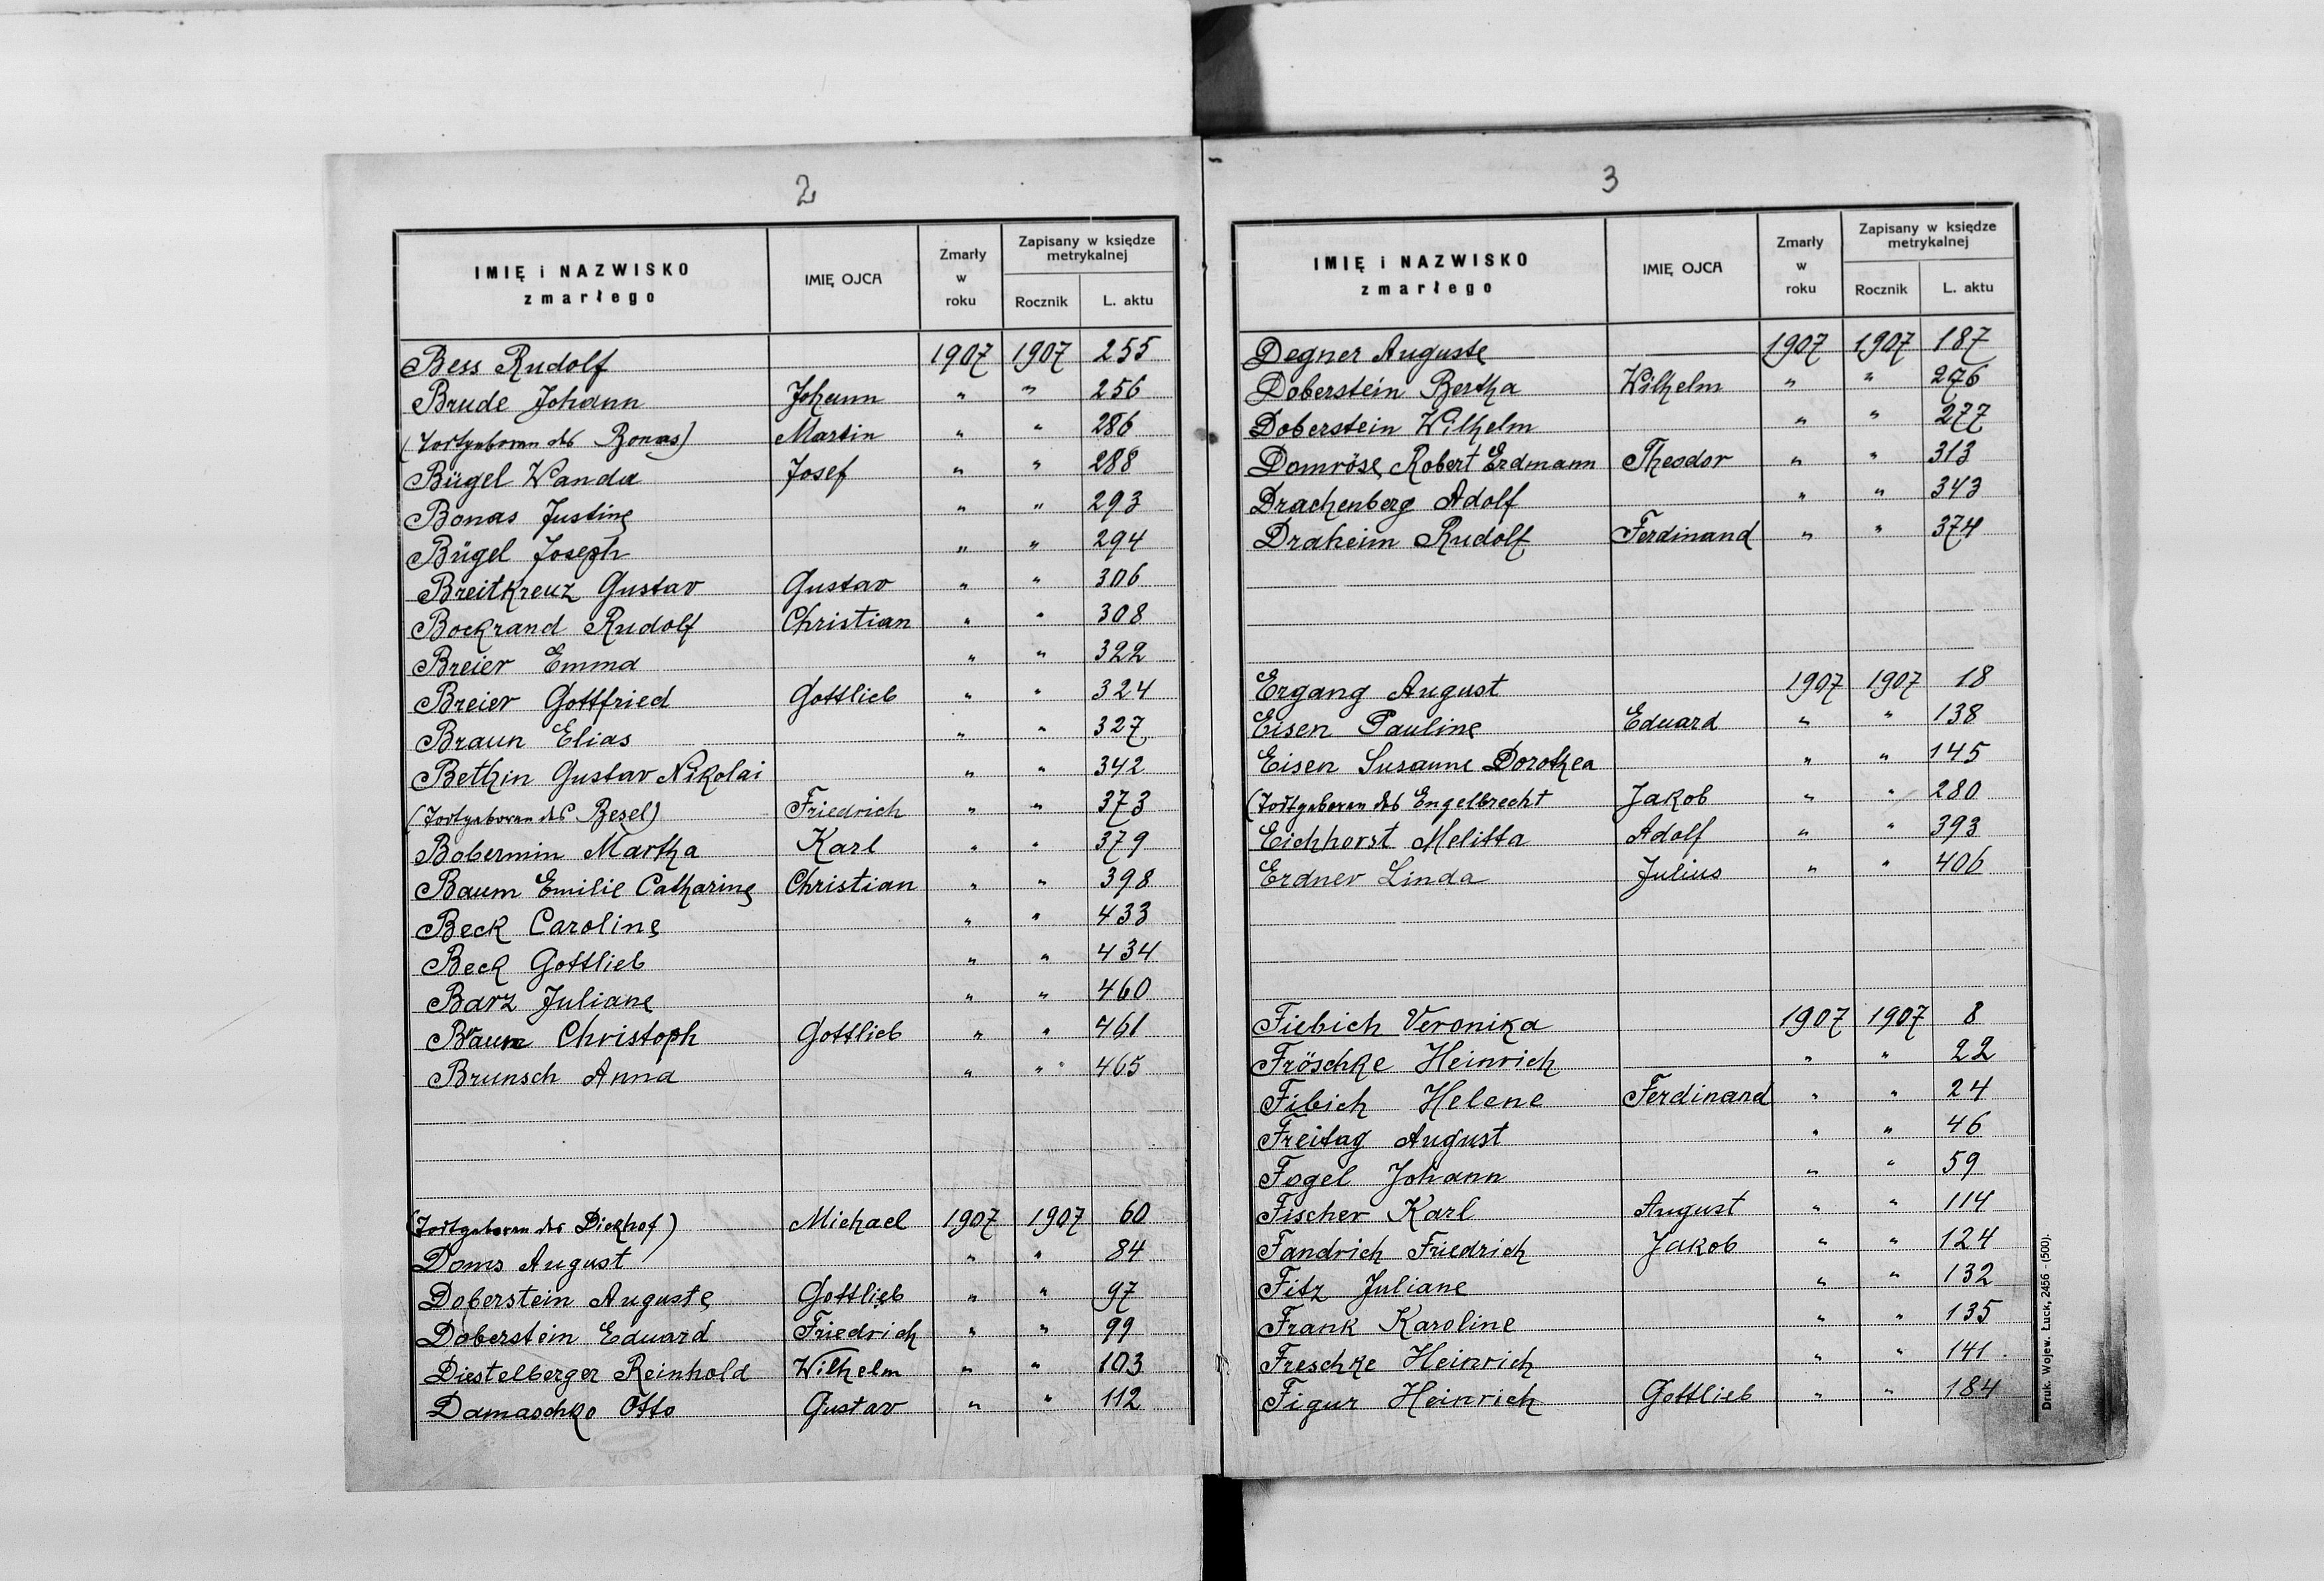 2
IMIĘ i NAZWISKO zmarłego | IMIĘ OJCA | Zmarły w roku | Zapisany w księdze metrykalnej
Rocznik | L. aktu
Bess Rudolf | | 1907 | 1907 | 255
Brude Johann | Johann | " | " | 256
(Totgeboren des Bonas) | Martin | " | " | 286
Bügel Wanda | Josef | " | " | 288
Bonas Justine | | " | " | 293
Bügel Joseph | | " | " | 294
Breitkreuz Gustav | Gustav | " | " | 306
Bockrand Rudolf | Christian | " | " | 308
Breier Emma | | " | " | 322
Breier Gottfried | Gottlieb | " | " | 324
Braun Elias | | " | " | 327
Bethin Gustav Nikolai | | " | " | 342
(Totgeboren des Besel) | Friedrich | " | " | 373
Bobermin Martha | Karl | " | " | 379
Baum Emilie Catharine | Christian | " | " | 398
Beck Caroline | | " | " | 433
Beck Gottlieb | | " | " | 434
Barz Juliane | | " | " | 460
Braun Christoph | Gottlieb | " | " | 461
Brunsch Anna | | " | " | 465
(Totgeboren des Dickhof) | Michael | 1907 | 1907 | 60
Doms August | | " | " | 84
Doberstein Auguste | Gottlieb | " | " | 97
Doberstein Eduard | Friedrich | " | " | 99
Diestelberger Reinhold | Wilhelm | " | " | 103
Damaschke Otto | Gustav | " | " | 112
3
IMIĘ i NAZWISKO zmarłego | IMIĘ OJCA | Zmarły w roku | Zapisany w księdze metrykalnej
Rocznik | L. aktu
Degner Auguste | | 1907 | 1907 | 187
Doberstein Bertha | Wilhelm | " | " | 276
Doberstein Wilhelm | | " | " | 277
Domröse Robert Erdmann | Theodor | " | " | 313
Drachenberg Adolf | | " | " | 343
Draheim Rudolf | Ferdinand | " | " | 374
Ergang August | | 1907 | 1907 | 18
Eisen Pauline | Eduard | " | " | 138
Eisen Susanne Dorothea | | " | " | 145
(Totgeboren des Engelbrecht | Jakob | " | " | 280
Eichhorst Melitta | Adolf | " | " | 393
Erdner Linda | Julius | " | " | 406
Fiebich Veronika | | 1907 | 1907 | 8
Fröschke Heinrich | | " | " | 22
Fibich Helene | Ferdinand | " | " | 24
Freitag August | | " | " | 46
Fogel Johann | | " | " | 59
Fischer Karl | August | " | " | 114
Fandrich Friedrich | Jakob | " | " | 124
Fitz Juliane | | " | " | 132
Frank Karoline | | " | " | 135
Freschke Heinrich | | " | " | 141
Figur Heinrich | Gottlieb | " | " | 184
Druk. Wojew. Łuck, 2456 - (500).